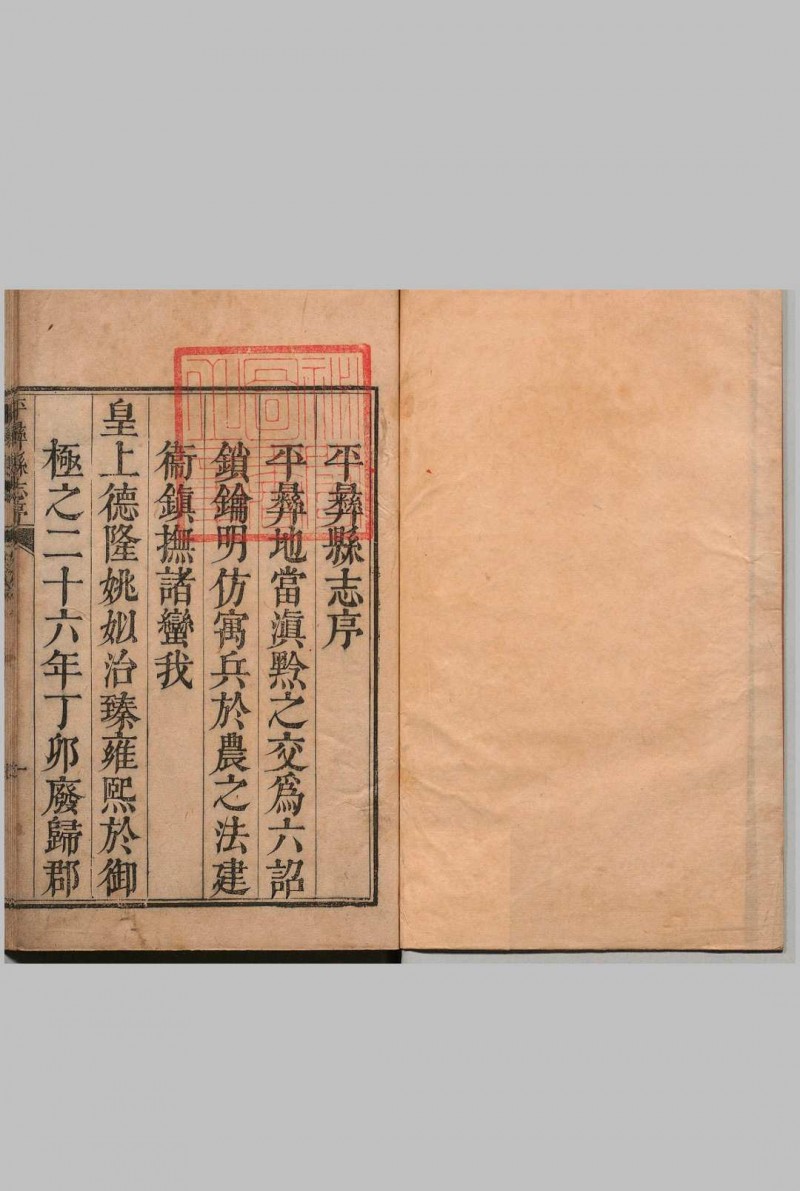 平彝縣志序
平彝地當滇黔之交爲六詔
鎖鑰明仿寓兵於農之法建
衞鎮撫諸蠻我
皇上德隆姚姒治臻雍熙於御
極之二十六年丁卯廢歸郡
平彝縣志序
一